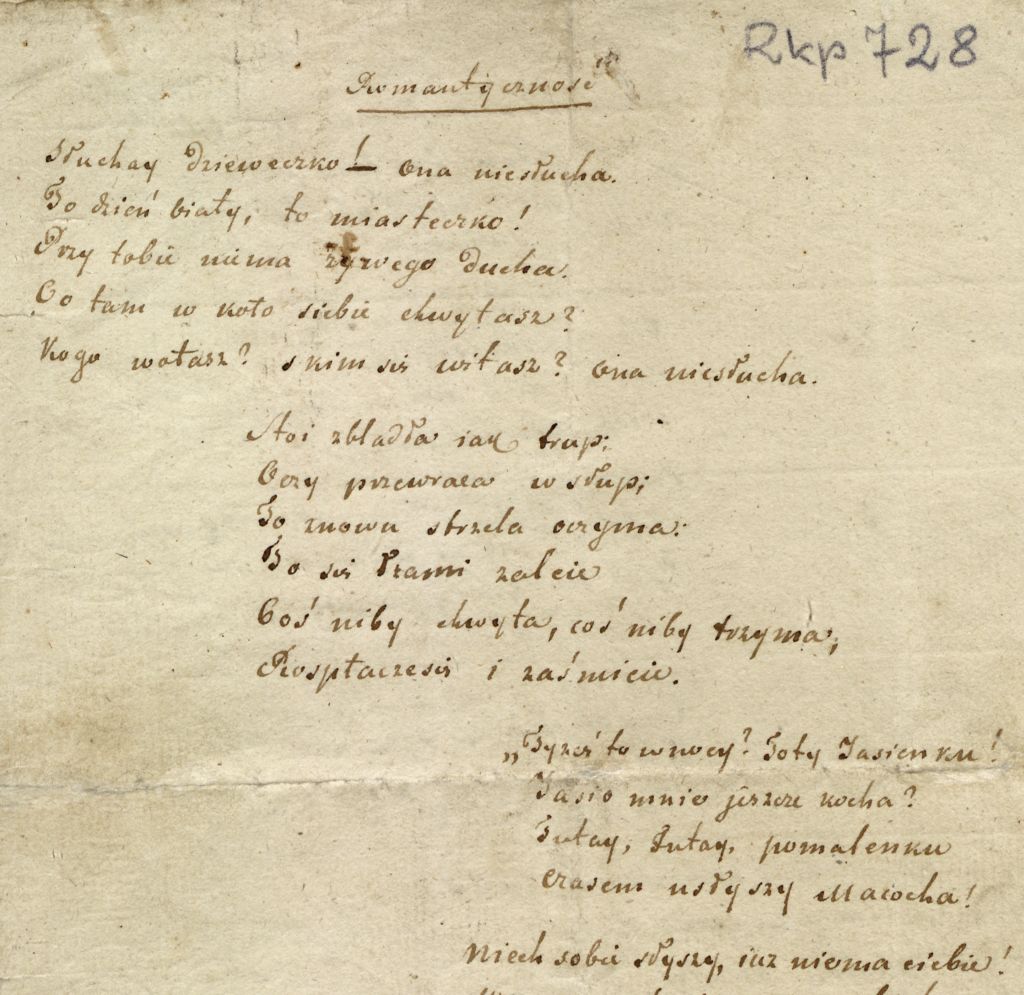 Rkp 728
Romantyczność
Słuchay dzieweczko! – ona niesłucha.
To dzień biały, to miasteczko!
Przy tobie niema żywego ducha.
Co tam w koło siebie chwytasz?
Kogo wołasz? s kim sie witasz? ona niesłucha.
Stoi zbladła iak trup;
Oczy przewraca w słup;
To znowu strzela oczyma:
To sie łzami zaleie
Coś niby chwyta, coś niby trzyma,
Rospłaczesie i zaśmieie.
„Tyześ to wnocy? Toty Jasienku!
Jasio mnie jeszcze kocha?
Tutay, Tutay, pomalenku
Czasem usłyszy Macocha!
Niech sobie słyszy, iuz niema ciebie!